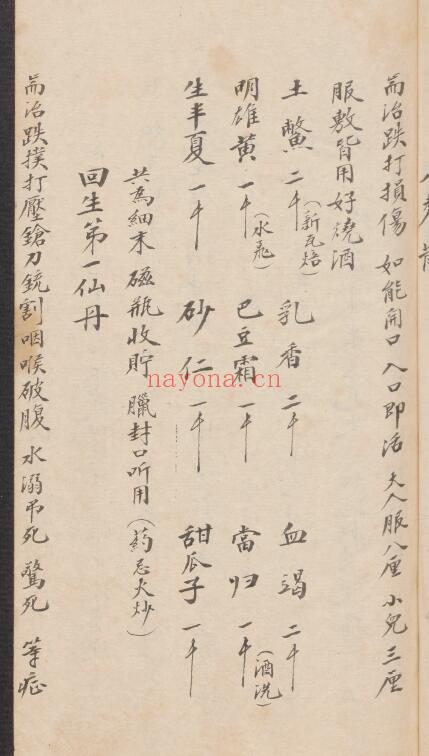 耑治跌打損傷 如能開口 入口即活 大人服八厘 小兒三厘
服敷皆用好燒酒
土鱉二千(新瓦焙) 乳香二千 血竭二千
明雄黃一千(水飛) 巴豆霜一千 當归一千(酒洗)
生半夏一千 砂仁一千 甜瓜子一千
共為細末 磁瓶收貯 臘封口听用(葯忌火炒)
回生第一仙丹
耑治跌撲打壓鎗刀銃割咽喉破腹 水溺吊死 驚死 等症
nayona.cn